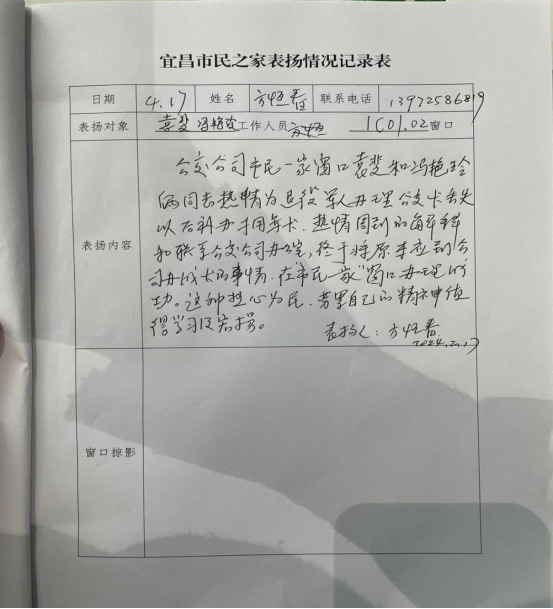 宜昌市民之家表扬情况记录表
日期 4.17 姓名 方恒春 联系电话 13972586819
表扬对象 袁斐 冯艳玲 工作人员 1C01.02 窗口
表扬内容
公交公司市民一家窗口袁斐和冯艳玲
俩同志热情为退役军人办理公交卡丢失
以后补办手用年卡.热情周到的
和联系公交公司办公室,终于将原本应到公
司办成大的事情.在市民一家"窗口办理成
功。这种担心为民.劳累自己的精神值
得学习及发扬。
表扬人:方恒春
2024.2.17
窗口掠影